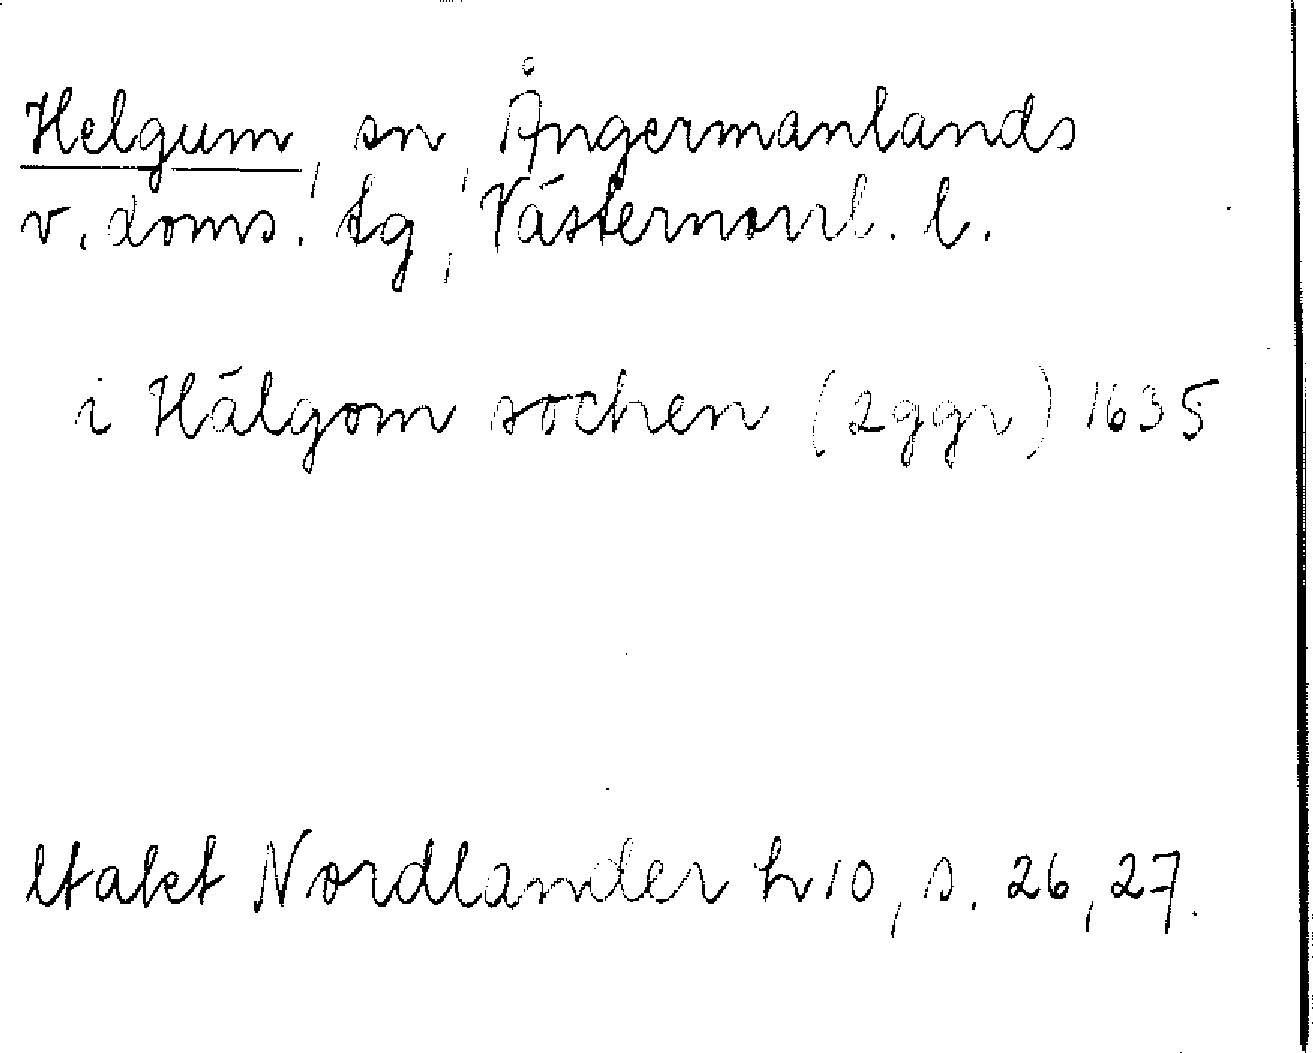 Helgum, sn, Ångermanlands
v. doms. tg, Västernorrl. l.
i Hälgom sochen (2ggr) 1635
Utakt Nordlander h10, s. 26, 27.